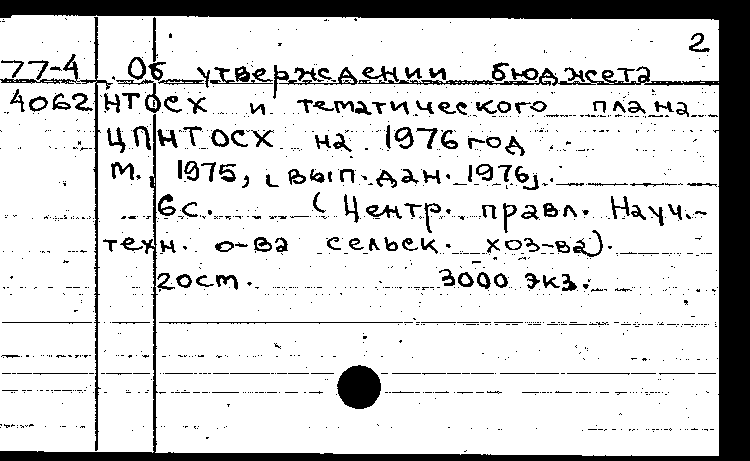 2
77-4 Об утверждении бюджета
4062 НТОСХ и тематического плана
ЦПНТОСХ на 1976 год
М., 1975, [вып. дан. 1976].
6с. (Центр. правл. Науч.-
техн. о-ва сельск. хоз-ва).
20 см. 3000 экз.